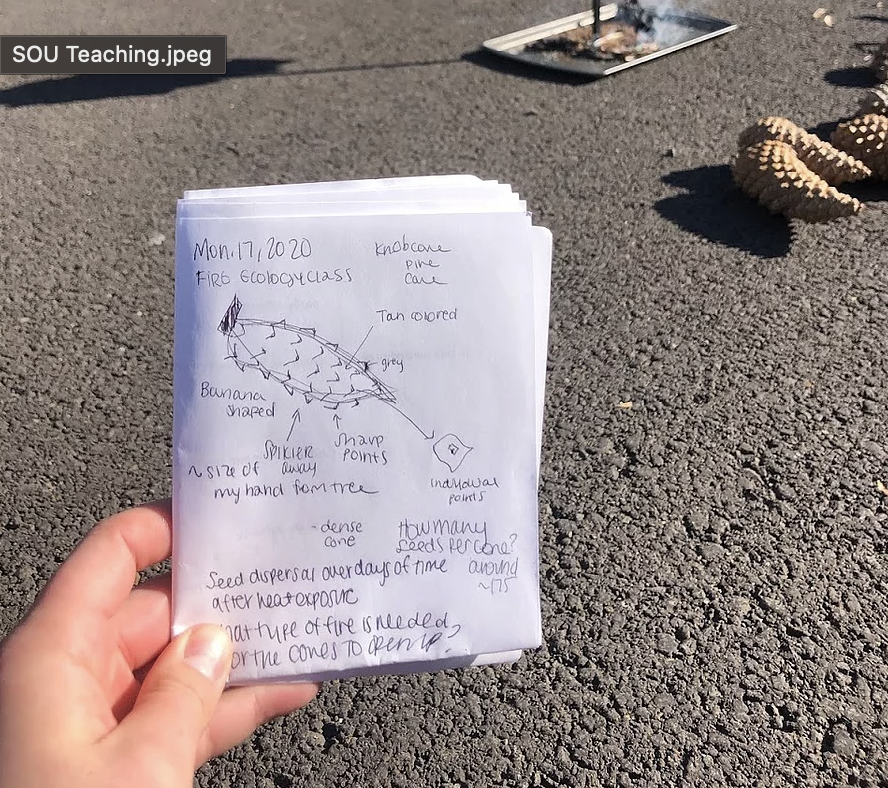 SOU Teaching.jpeg
Mon. 17, 2020
FIRE ECOLOGY CLASS
Knobcone
pine
cone
Tan colored
grey
Banana
shaped
SPIKIER
away
from tree
sharp
points
~ size of
my hand
individual
points
- dense
cone
How many
seeds per cone?
around
~175
Seed dispersal over days of time
after heat exposure
hat type of fire is needed
or the cones to open up?